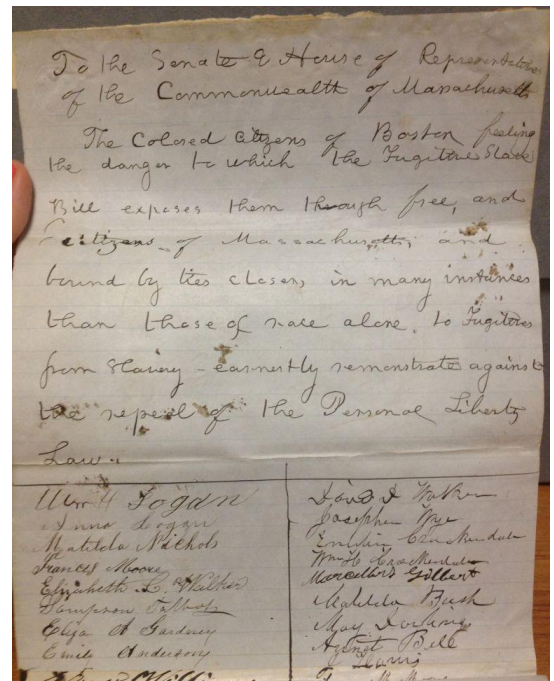 To the Senate & House of Representatives
of the Commonwealth of Massachusetts
The Colored Citizens of Boston feeling
the danger to which the Fugitive Slave
Bill exposes them through free, and
Citizens of Massachusetts, and
bound by ties closer, in many instances
than those of race alone, to Fugitives
from Slavery - earnestly remonstrate against
the repeal of the Personal Liberty
Law.
Wm H Logan
Anna Logan
Matilda Nichols
Francis Moore
Elizabeth L. Walker
Sampson Talbot
Eliza A Gardner
Emily Anderson
David Walker
Joseph
Emilin Crockendale
Wm H Crockendale
Marcellus Gilbert
Matilda Bush
May
August Bell
Harris
Moore